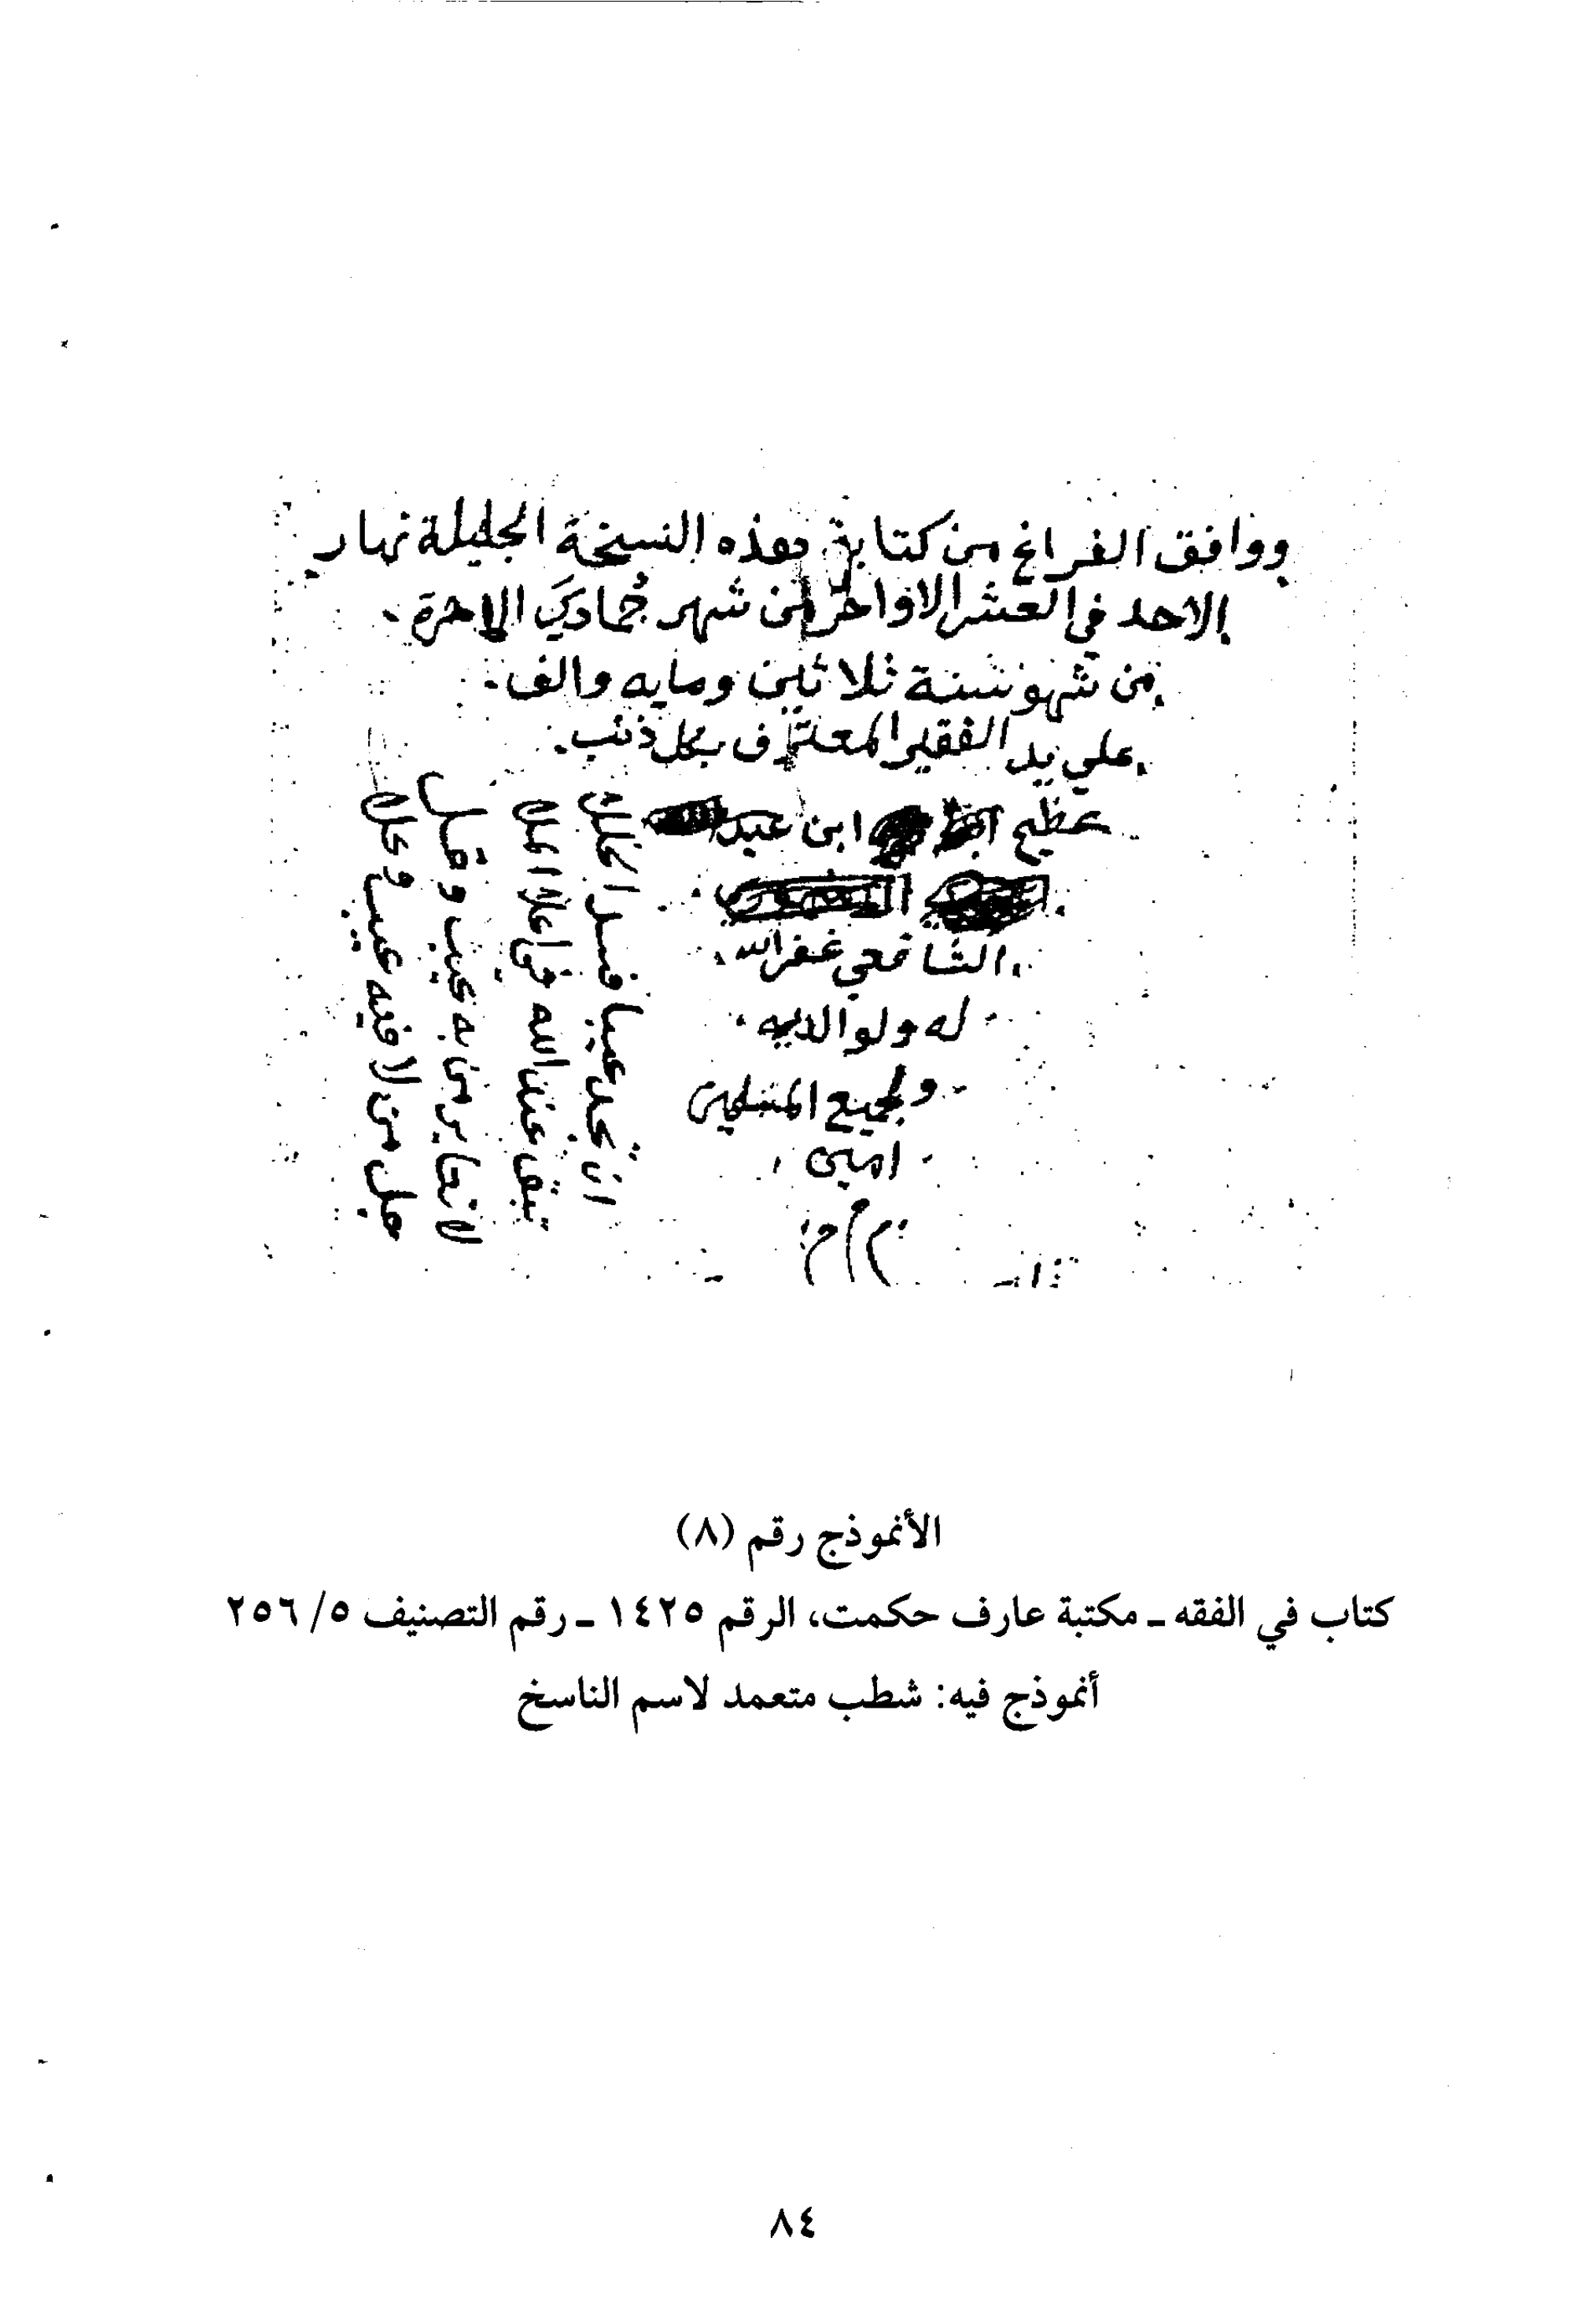 ووافق الفراغ من كتابة هذه النسخة الجليلة نهار
الاحد في العشر الاواخر من شهر جمادي الاخرة
من شهور سنة ثلاثين ومايه والف
علي يد الفقير المعترف بكل ذنب
عظيم ابن عبد
الشافعي غفر الله
له ولوالديه
ولجميع المسلمين
امين
م م
ان تجد عيبا فسد الخللا
تبق عند الله في اعلا
لا تعاير من به عيب وقل
جل من لا فيه عيب وعلا
الأنموذج رقم (٨)
كتاب في الفقه ـ مكتبة عارف حكمت، الرقم ١٤٢٥ ـ رقم التصنيف ٥/ ٢٥٦
أنموذج فيه: شطب متعمد لاسم الناسخ
٨٤